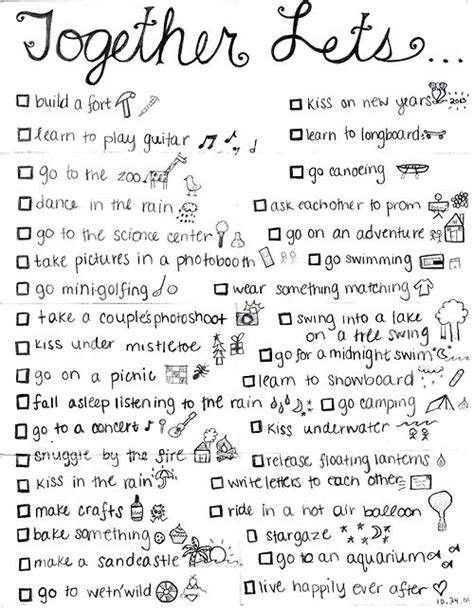 Together Lets...
build a fort
learn to play guitar
go to the zoo
dance in the rain
go to the science center
take pictures in a photobooth
go mini-golfing
take a couple's photoshoot
kiss under mistletoe
go on a picnic
fall asleep listening to the rain
go to a concert
snuggle by the fire
kiss in the rain
make crafts
bake something
make a sandcastle
go to wet'n'wild
kiss on new years
learn to longboard
go canoeing
ask eachother to prom
go on an adventure
go swimming
wear something matching
swing into a lake
on a tree swing
go for a midnight swim
learn to snowboard
go camping
kiss underwater
release floating lanterns
write letters to each other
ride in a hot air balloon
stargaze
go to an aquarium
live happily ever after